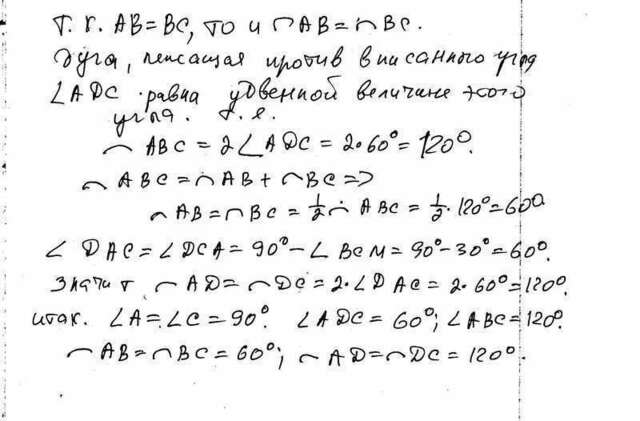 Т. к. AB=BC, то и ◠AB=◠BC.
Дуга, лежащая против вписанного угла
∠ADC равна удвенной величине этого
угла. т.е.
◠ ABC = 2∠ADC = 2·60°= 120°.
◠ ABC = ◠AB + ◠BC =>
◠ AB = ◠BC = 1/2 ◠ ABC = 1/2 · 120°= 60°
∠ DAC = ∠DCA = 90° - ∠ BCM = 90°-30°=60°.
Значит ◠ AD = ◠DC = 2·∠DAC = 2·60°=120°.
итак. ∠A = ∠C = 90°. ∠ADC = 60°; ∠ABC=120°.
◠ AB = ◠BC = 60°; ◠ AD=◠DC = 120°.